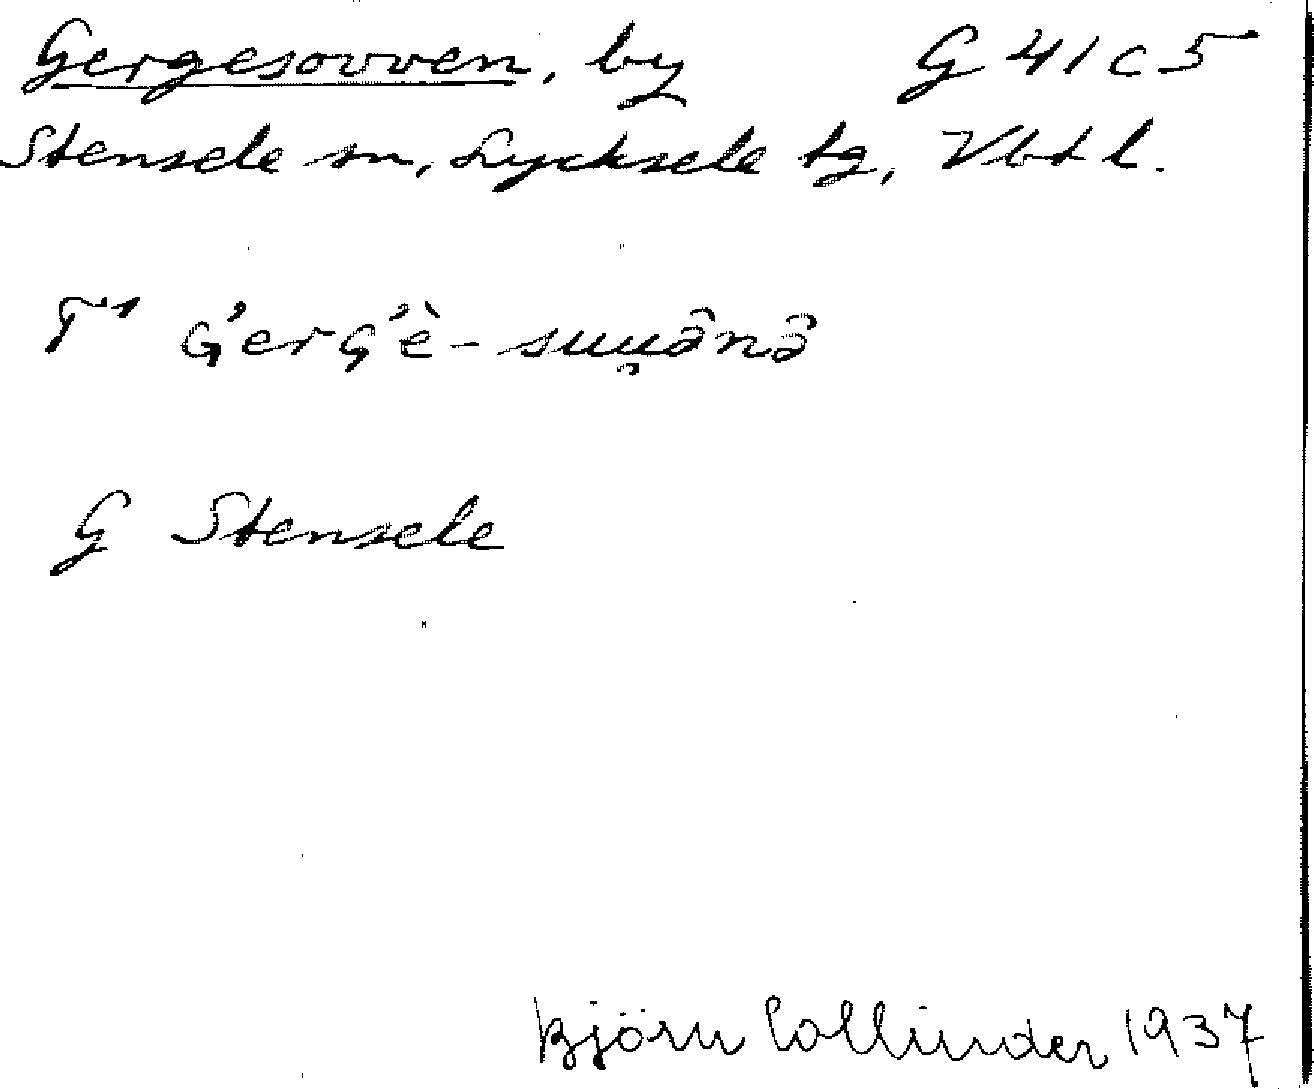 Gergesovven, by G 41 c 5
Stensele sn, Lycksele tg, Vbtl.
T¹ G'erG'è-suu̯ânâ
G Stensele
Björn Collinder 1937